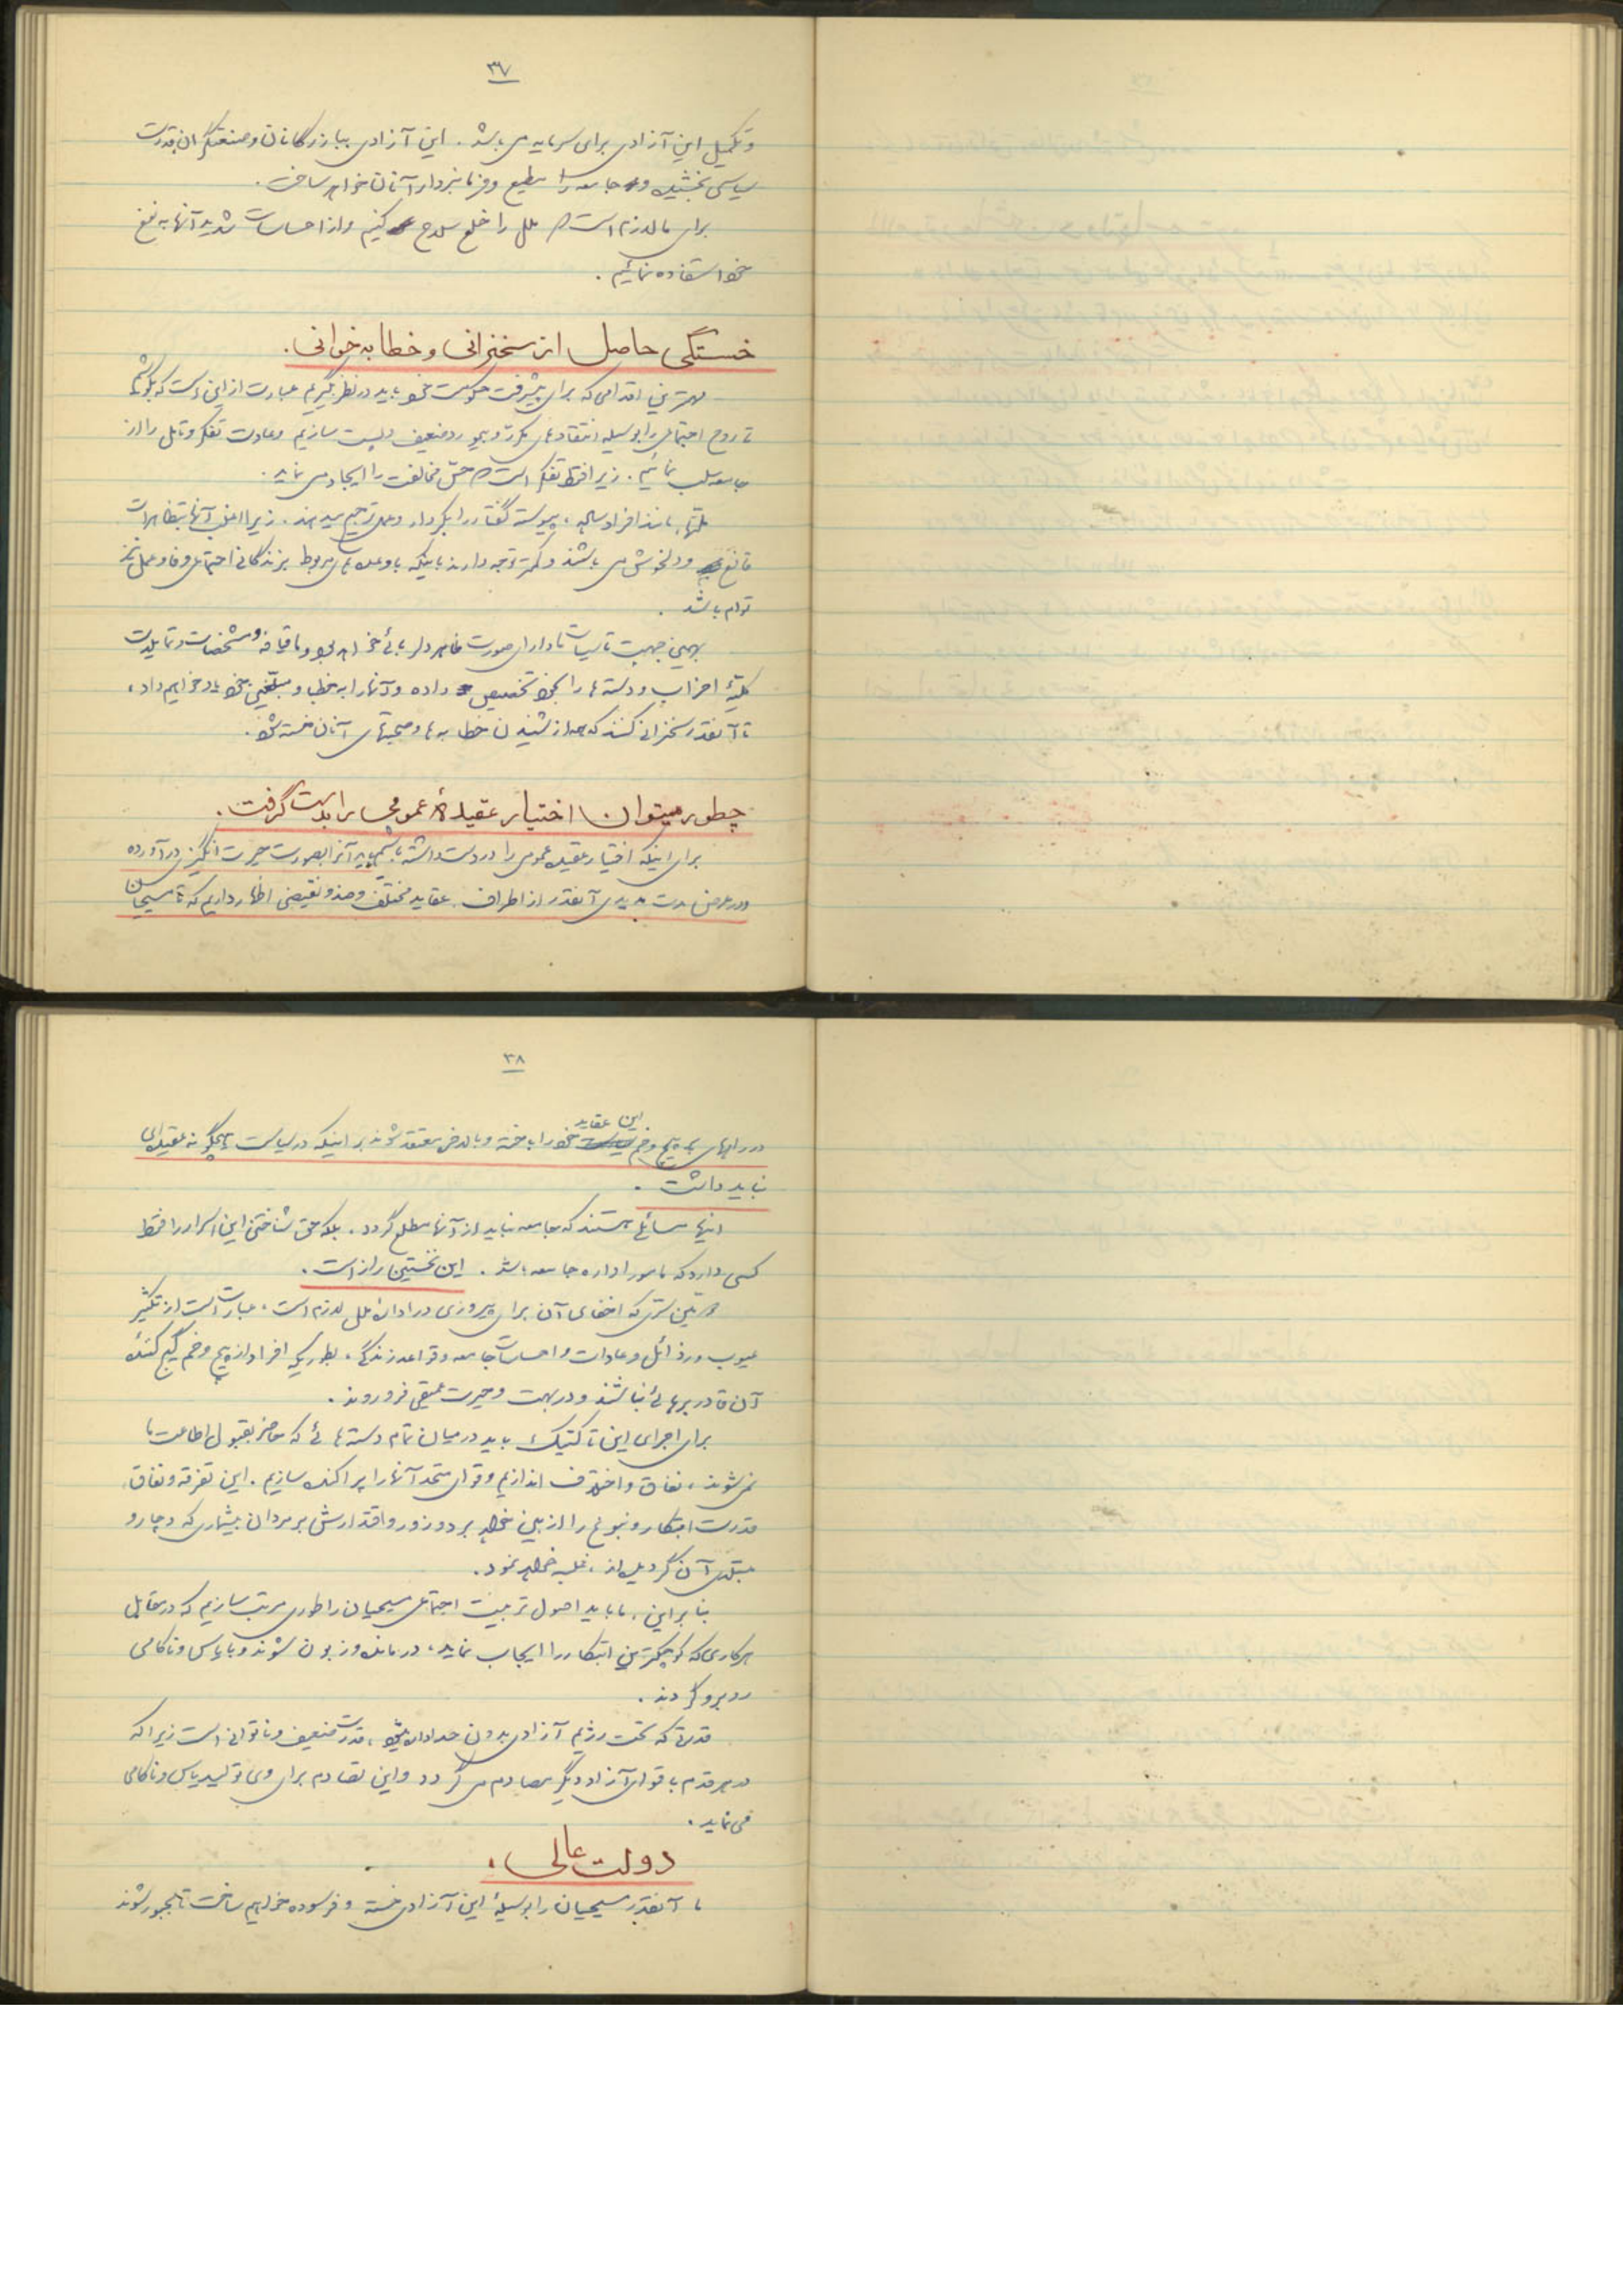 ۳۷
و تکمیل این آزادی برای سرمایه می باشد . این آزادی ببازرگانان و صنعتگران قدرت
سیاسی بخشیده و جامعه را مطیع و فرمانبردار آنان خواهد ساخت .
برای ما لازم است که ملل را خلع سلاح کنیم و از احساسات شدید آنها به نفع
خود استفاده نمائیم .
خستگی حاصل از سخنرانی و خطابه خوانی .
مهمترین اقدامی که برای پیشرفت حکومت خود باید در نظر بگیریم عبارت از این است که بکوشیم
تا روح اجتماعی را بوسیله انتقادهای مکرر و بیمورد ضعیف و پست سازیم و عادت تفکر و تامل را از
جامعه سلب نمائیم . زیرا فقط تفکر است که حس مخالفت را ایجاد می نماید .
ملتها ، مانند افراد ساده ، پیوسته گفتار را بکردار و عمل ترجیح میدهند . زیرا اغلب آنها بتظاهرات
قانع و دلخوش می باشند و کمتر توجه دارند باینکه باوعده های مربوط بزندگانی اجتماعی وفا و عمل نیز
توام باشد .
بهمین جهت تاسیسات ما دارای صورت ظاهر دلربائی خواهد بود و ما قیافه و مشخصات و تمایلات
کلیهٔ احزاب و دسته ها را بخود تخصیص داده و آنها را به خطبا و مبلغین خود یاد خواهیم داد ،
تا آنقدر سخنرانی کنند که همه از شنیدن خطابه ها و صحبتهای آنان خسته شوند .
چطور میتوان اختیار عقیدهٔ عمومی را بدست گرفت .
برای اینکه اختیار عقیده عمومی را در دست داشته باشیم باید آنرا بصورت حیرت انگیزی در آورده
و در عرض مدت مدیدی آنقدر از اطراف . عقاید مختلف و ضد و نقیض اظهار داریم که تا مسیحیان
۳۸
در راههای پر پیچ و خم این عقاید خود را باخته و بالاخره معتقد شوند بر اینکه در سیاست هیچگونه عقیده ای
نباید داشت .
اینها مسائلی هستند که جامعه نباید از آنها مطلع گردد . بلکه حق شناختن این اسرار را فقط
کسی دارد که مامور اداره جامعه باشد . این نخستین راز است .
دومین سری که اخفای آن برای پیروزی در ادارهٔ ملل لازم است ، عبارت است از تکثیر
عیوب و رذائل و عادات و احساسات جامعه و قواعد زندگی ، بطوریکه افراد از پیچ و خم گیج کنندهٔ
آن قادر برهائی نباشند و در بهت و حیرت عمیقی فرو روند .
برای اجرای این تاکتیک باید در میان تمام دسته هائی که حاضر بقبول اطاعت ما
نمی شوند ، نفاق و اختلاف اندازیم و قوای متحد آنها را پراکنده سازیم . این تفرقه و نفاق
قدرت ابتکار و نبوغ را از بین خواهد برد و زور و اقتدارش بر مردان بیشماری که دچار و
مبتلای آن گردیده اند ، غلبه خواهد نمود .
بنابراین ، ما باید اصول تربیت اجتماعی مسیحیان را طوری مرتب سازیم که در مقابل
هر کاری که کوچکترین ابتکار را ایجاب نماید ، درمانده و زبون شوند و با یاس و ناکامی
روبرو گردند .
قدرتی که تحت رژیم آزادی بدون حد اداره میشود ، قدرت ضعیف و ناتوانی است زیرا که
در هر قدم با قوای آزاد دیگر مصادم می گردد و این تصادم برای وی تولید یاس و ناکامی
می نماید .
دولت عالی .
ما آنقدر مسیحیان را بوسیلهٔ این آزادی خسته و فرسوده خواهیم ساخت تا مجبور شوند